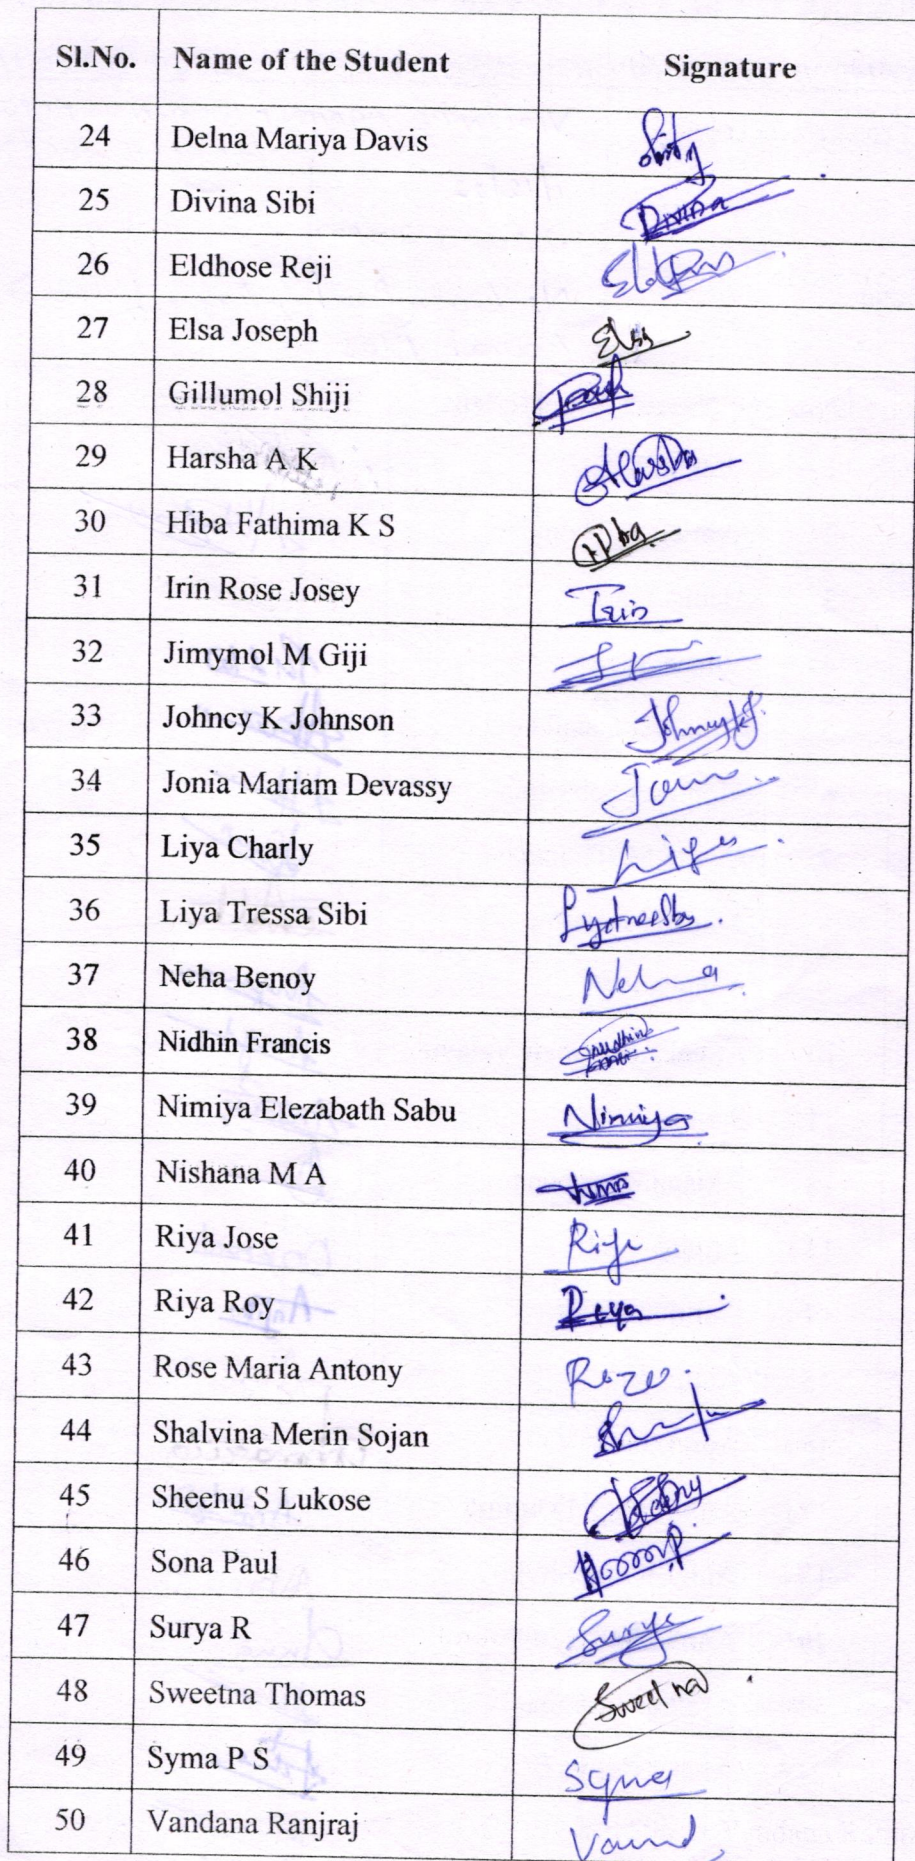 Sl.No. Name of the Student Signature
24 Delna Mariya Davis
25 Divina Sibi Divina
26 Eldhose Reji
27 Elsa Joseph Elsa
28 Gillumol Shiji
29 Harsha A K Harsha
30 Hiba Fathima K S Hiba
31 Irin Rose Josey Irin
32 Jimymol M Giji
33 Johncy K Johnson Johncykj.
34 Jonia Mariam Devassy
35 Liya Charly Liya
36 Liya Tressa Sibi
37 Neha Benoy Neha
38 Nidhin Francis
39 Nimiya Elezabath Sabu Nimiya
40 Nishana M A
41 Riya Jose Riya
42 Riya Roy Riya
43 Rose Maria Antony
44 Shalvina Merin Sojan
45 Sheenu S Lukose
46 Sona Paul
47 Surya R Surya
48 Sweetna Thomas Sweetna
49 Syma P S Syma
50 Vandana Ranjraj